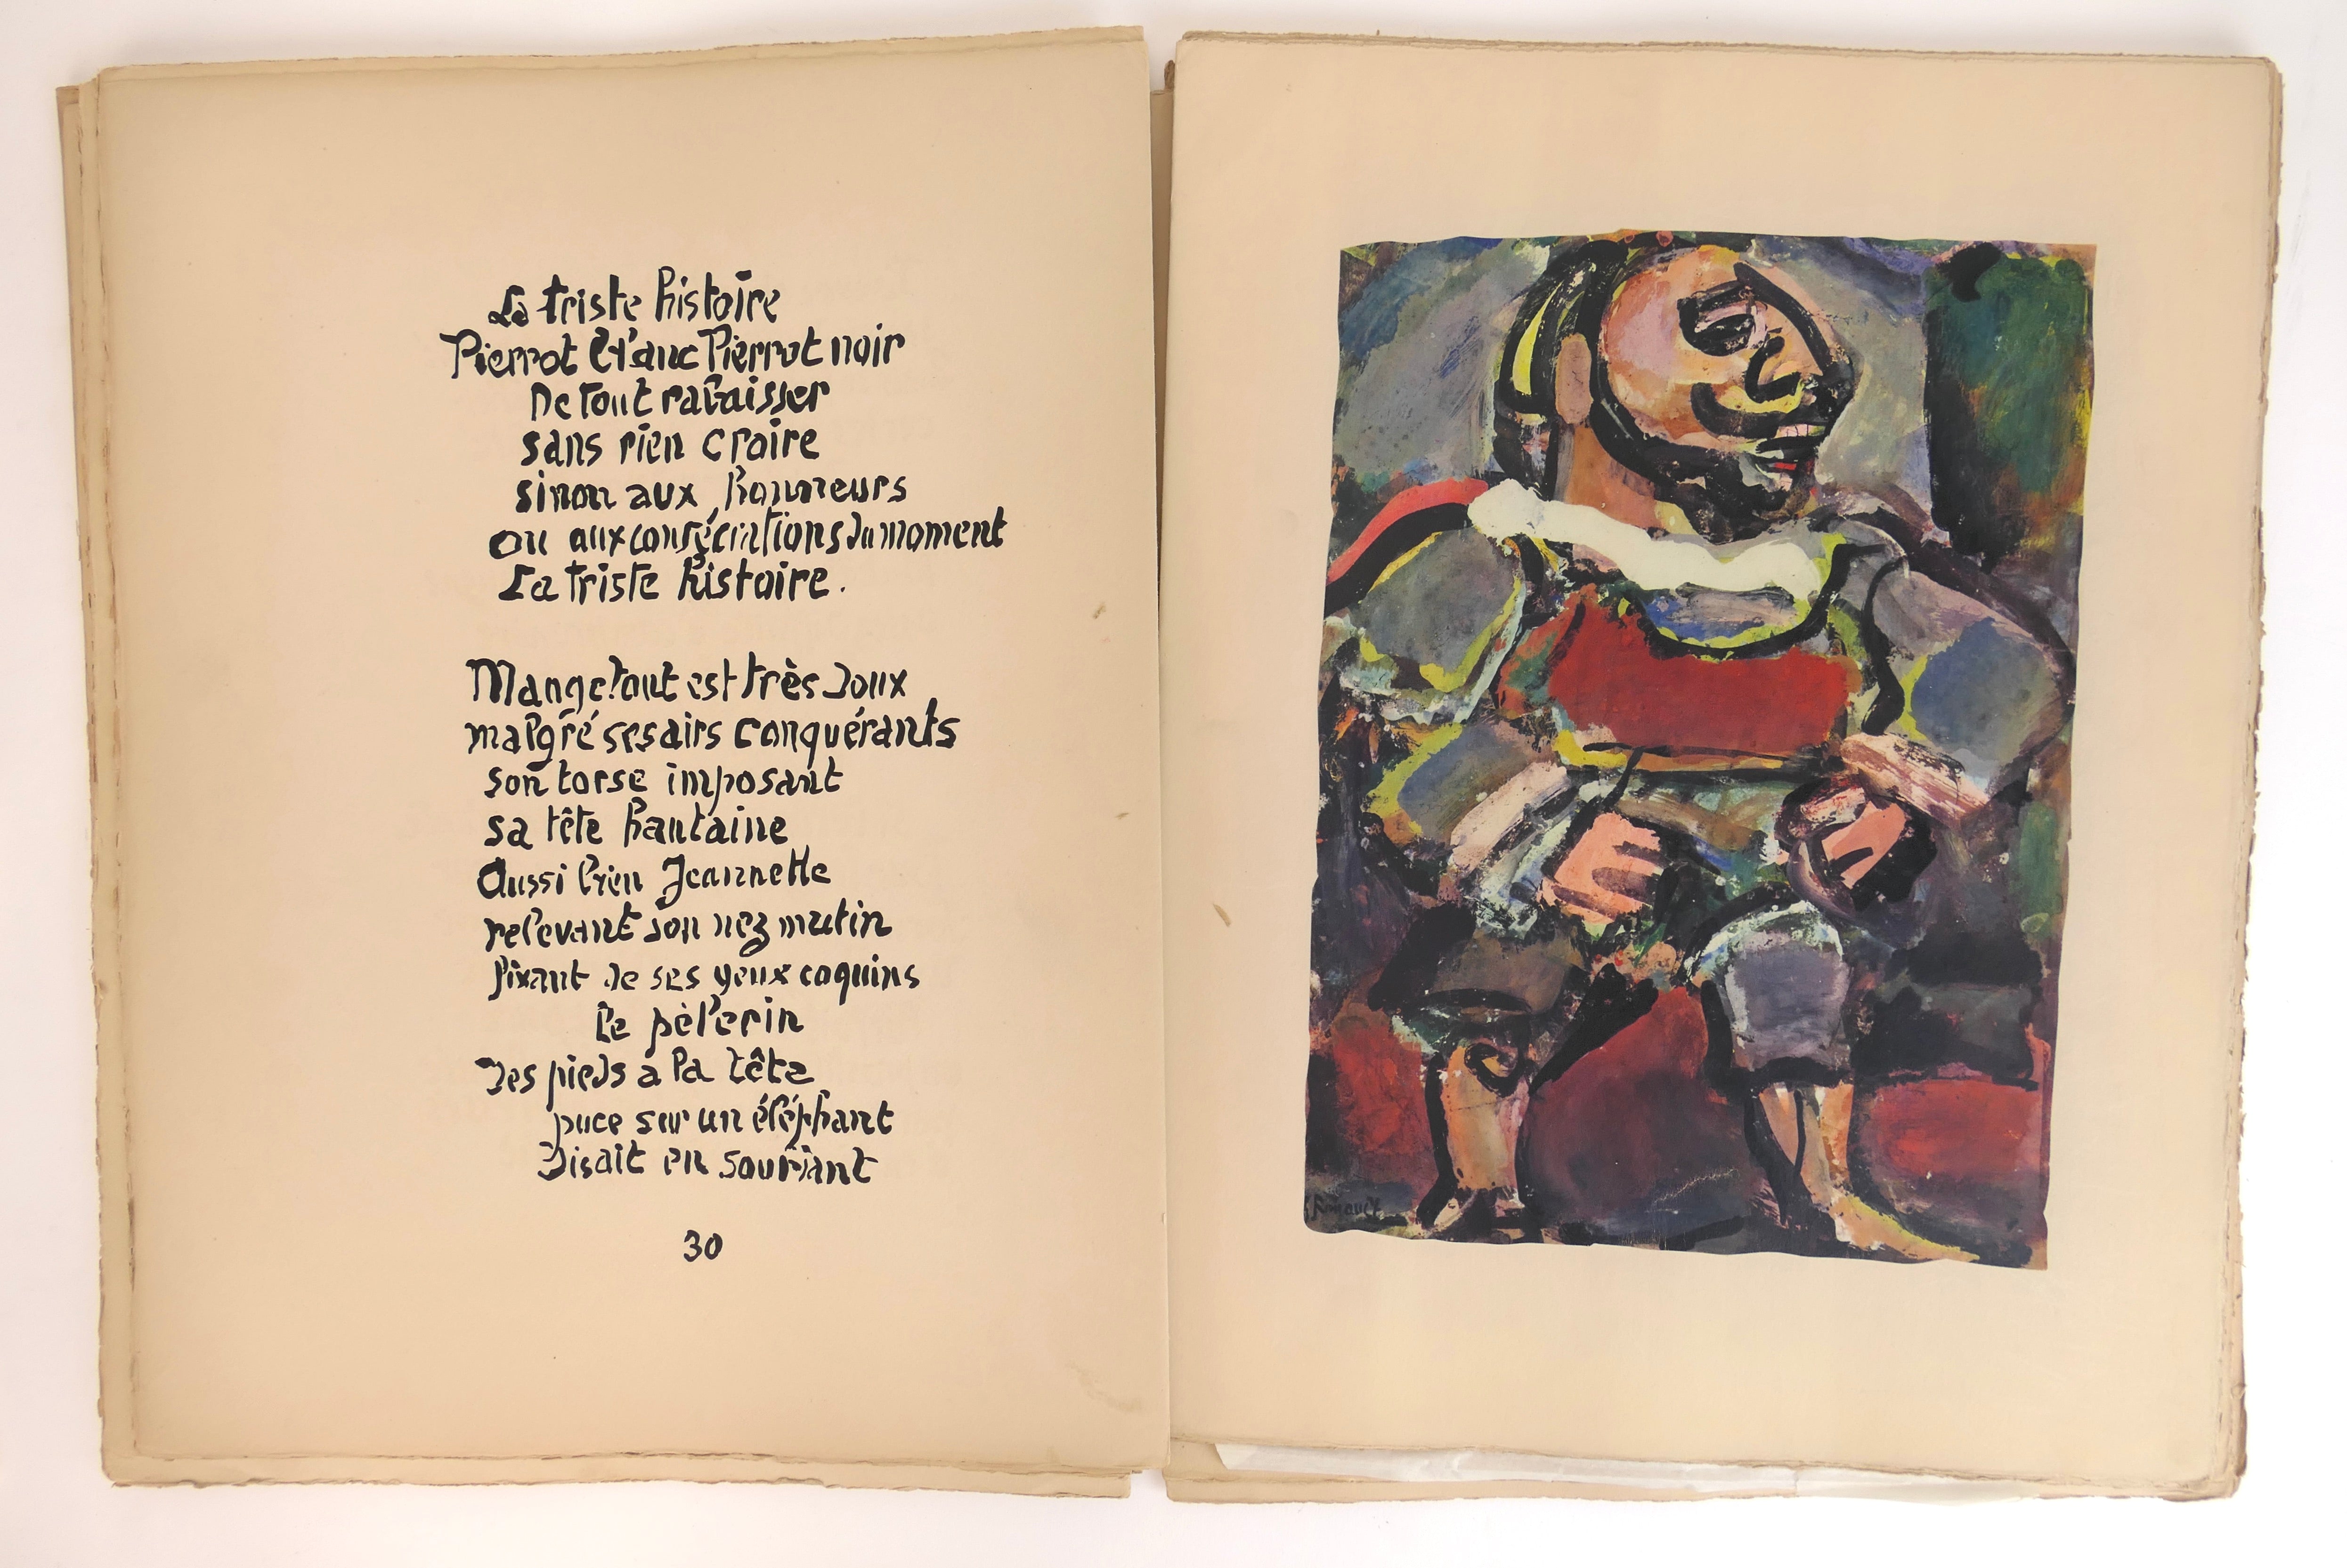 La triste histoire
Pierrot blanc Pierrot noir
De tout rabaisser
sans rien croire
sinon aux honneurs
ou aux consécrations du moment
La triste histoire.
Mangetout est très doux
malgré ses airs conquérants
son torse imposant
sa tête hautaine
Aussi bien Jeannette
relevant son nez mutin
fixant de ses yeux coquins
le pèlerin
Des pieds a la tête
puce sur un éléphant
Disait en souriant
30
G Rouault